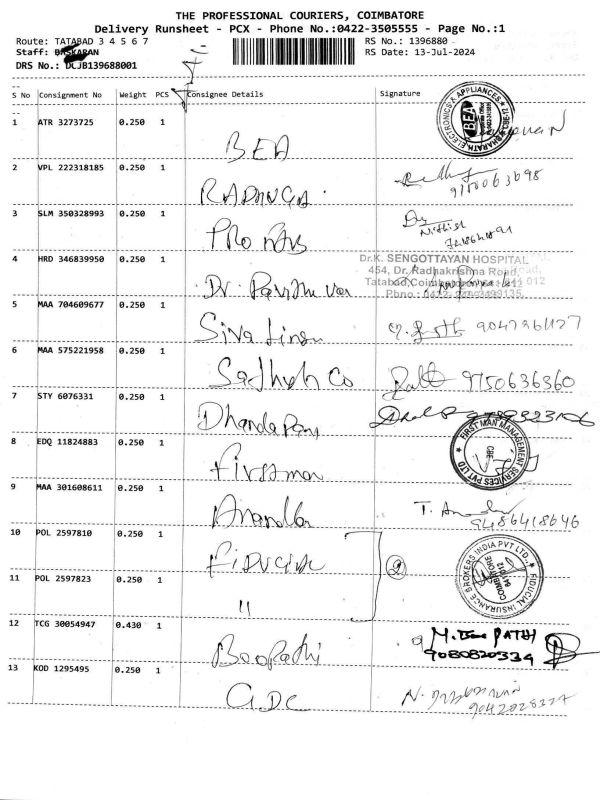 THE PROFESSIONAL COURIERS, COIMBATORE
Delivery Runsheet - PCX - Phone No.:0422-3505555 - Page No.:1
Route: TATABAD 3 4 5 6 7 RS No.: 1396880
Staff: BASKARAN RS Date: 13-Jul-2024
DRS No.: DLJB139688001
S No Consignment No Weight PCS Consignee Details Signature
1 ATR 3273725 0.250 1 BEA
BHARATH ELECTRONICS & APPLIANCES
BEA
2 VPL 222318185 0.250 1 RADHUGA
9150063698
3 SLM 350328993 0.250 1 Pro
Nithish
4 HRD 346839950 0.250 1 Dr.
Dr.K. SENGOTTAYAN HOSPITAL
454, Dr. Radhakrishna Road,
Tatabad, Coimbatore 012
Phno.: 0422
5 MAA 704609677 0.250 1 Siva
6 MAA 575221958 0.250 1 Co 9750636360
7 STY 6076331 0.250 1 Dhandapani
8 EDQ 11824883 0.250 1 Firstman
FIRST MAN MANAGEMENT SERVICES PVT LTD
CBE
9 MAA 301608611 0.250 1 T.
9486418646
10 POL 2597810 0.250 1
2
FIDUCIAL INSURANCE BROKERS INDIA PVT LTD.,
COIMBATORE
641 012
11 POL 2597823 0.250 1 "
12 TCG 30054947 0.430 1 Boopathi
PATHI
9080820334
13 KOD 1295495 0.250 1 G.D.C
N.